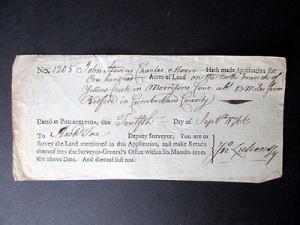 No. 1205 John Stevens Charles Moore Hath made Application for
One hundred Acres of Land on the North branch of
Yellow Creek in Morrisons Cove abt 15 Miles from
Bedford in Cumberland County
Dated at PHILADELPHIA, this Twelfth Day of Septr 1766
To Deputy Surveyor, You are to
survey the Land mentioned in this Application, and make Return
thereof into the Surveyor-General's Office within Six Months from
the above Date. And thereof fail not.
Jno Lukens SG